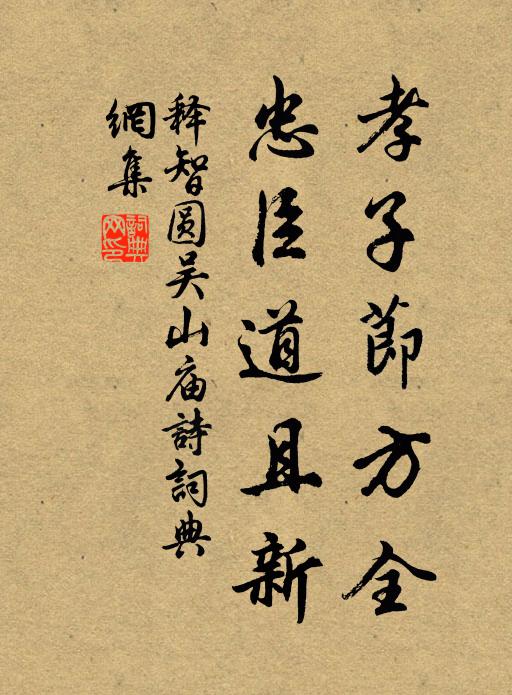 孝子節方全
忠臣道且新
释智圆吴山庙詩詞典
網集
詞典
网印